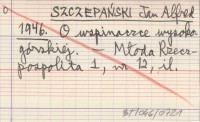 SZCZEPAŃSKI Jan Alfred
1946. O wspinaczce wysoko-
górskiej. — Młoda Rzecz-
pospolita 1, nr 12, il.